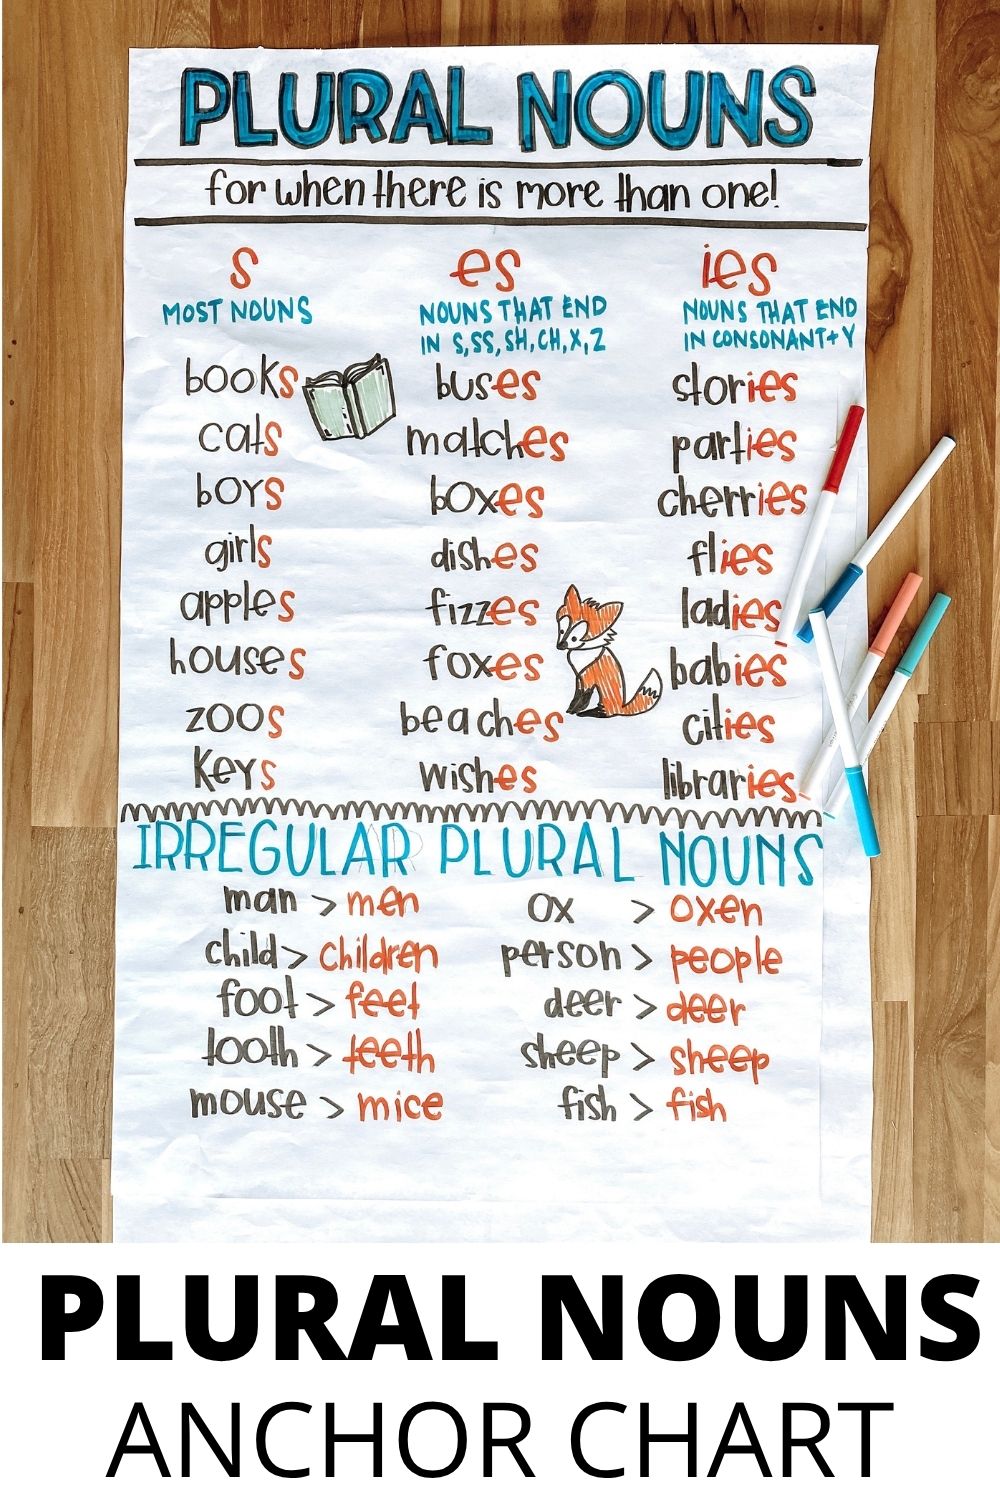 PLURAL NOUNS
for when there is more than one!
s
MOST NOUNS
books
cats
boys
girls
apples
houses
zoos
keys
es
NOUNS THAT END
IN S, SS, SH, CH, X, Z
buses
matches
boxes
dishes
fizzes
foxes
beaches
wishes
ies
NOUNS THAT END
IN CONSONANT+Y
stories
parties
cherries
flies
ladies
babies
cities
libraries
IRREGULAR PLURAL NOUNS
man > men
child > children
foot > feet
tooth > teeth
mouse > mice
ox > oxen
person > people
deer > deer
sheep > sheep
fish > fish
PLURAL NOUNS
ANCHOR CHART